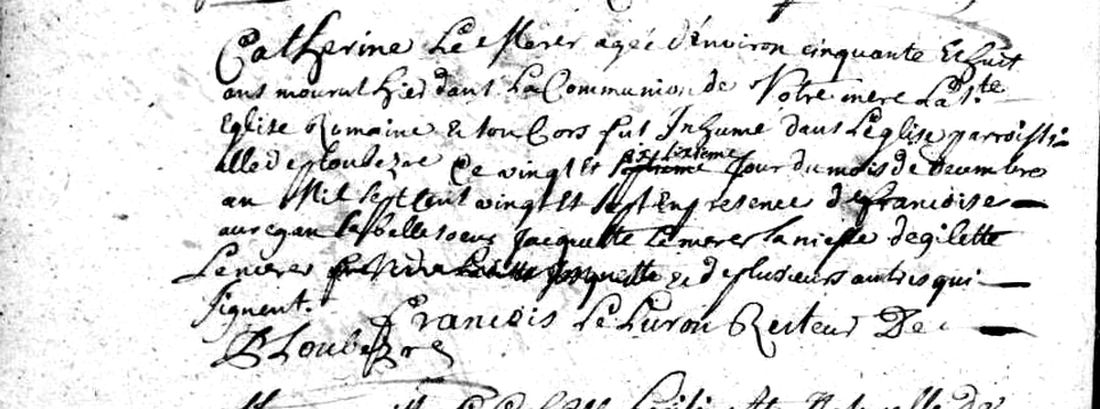 Catherine Le Merer agée d'Environ cinquante Et huit
ans mourut hier dans La Communion de Notre mere La Ste
Eglise Romaine & son Cors fut Inhumé dans L'eglise parroissi-
alle de ploubezre Ce vingt Et sixieme Jour du mois de Decembre
an Mil sept cent vingt Et sept En presence de francoise
auregan sa belle soeur Jacquette Le merer sa niesse de gilette
Le merer & de plusieurs autres qui
signent.
Francois Le Luron Recteur De
Ploubezre